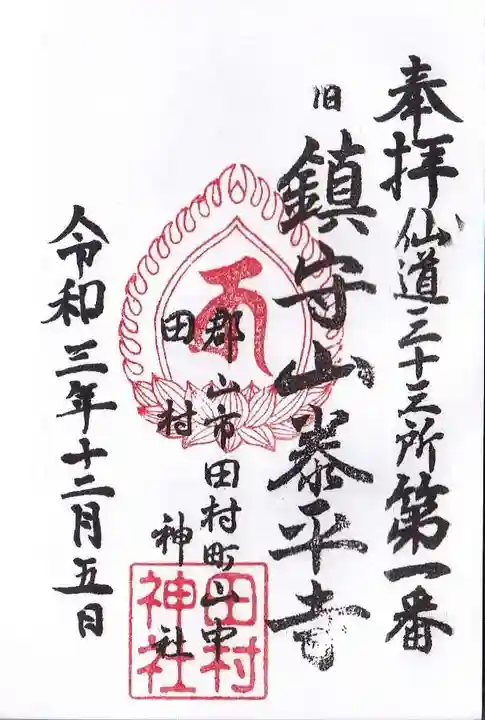 奉拝 仙道三十三所第一番
旧 鎮守山泰平寺
郡山市田村町山中
田村神社
令和三年十二月五日
田村
神社